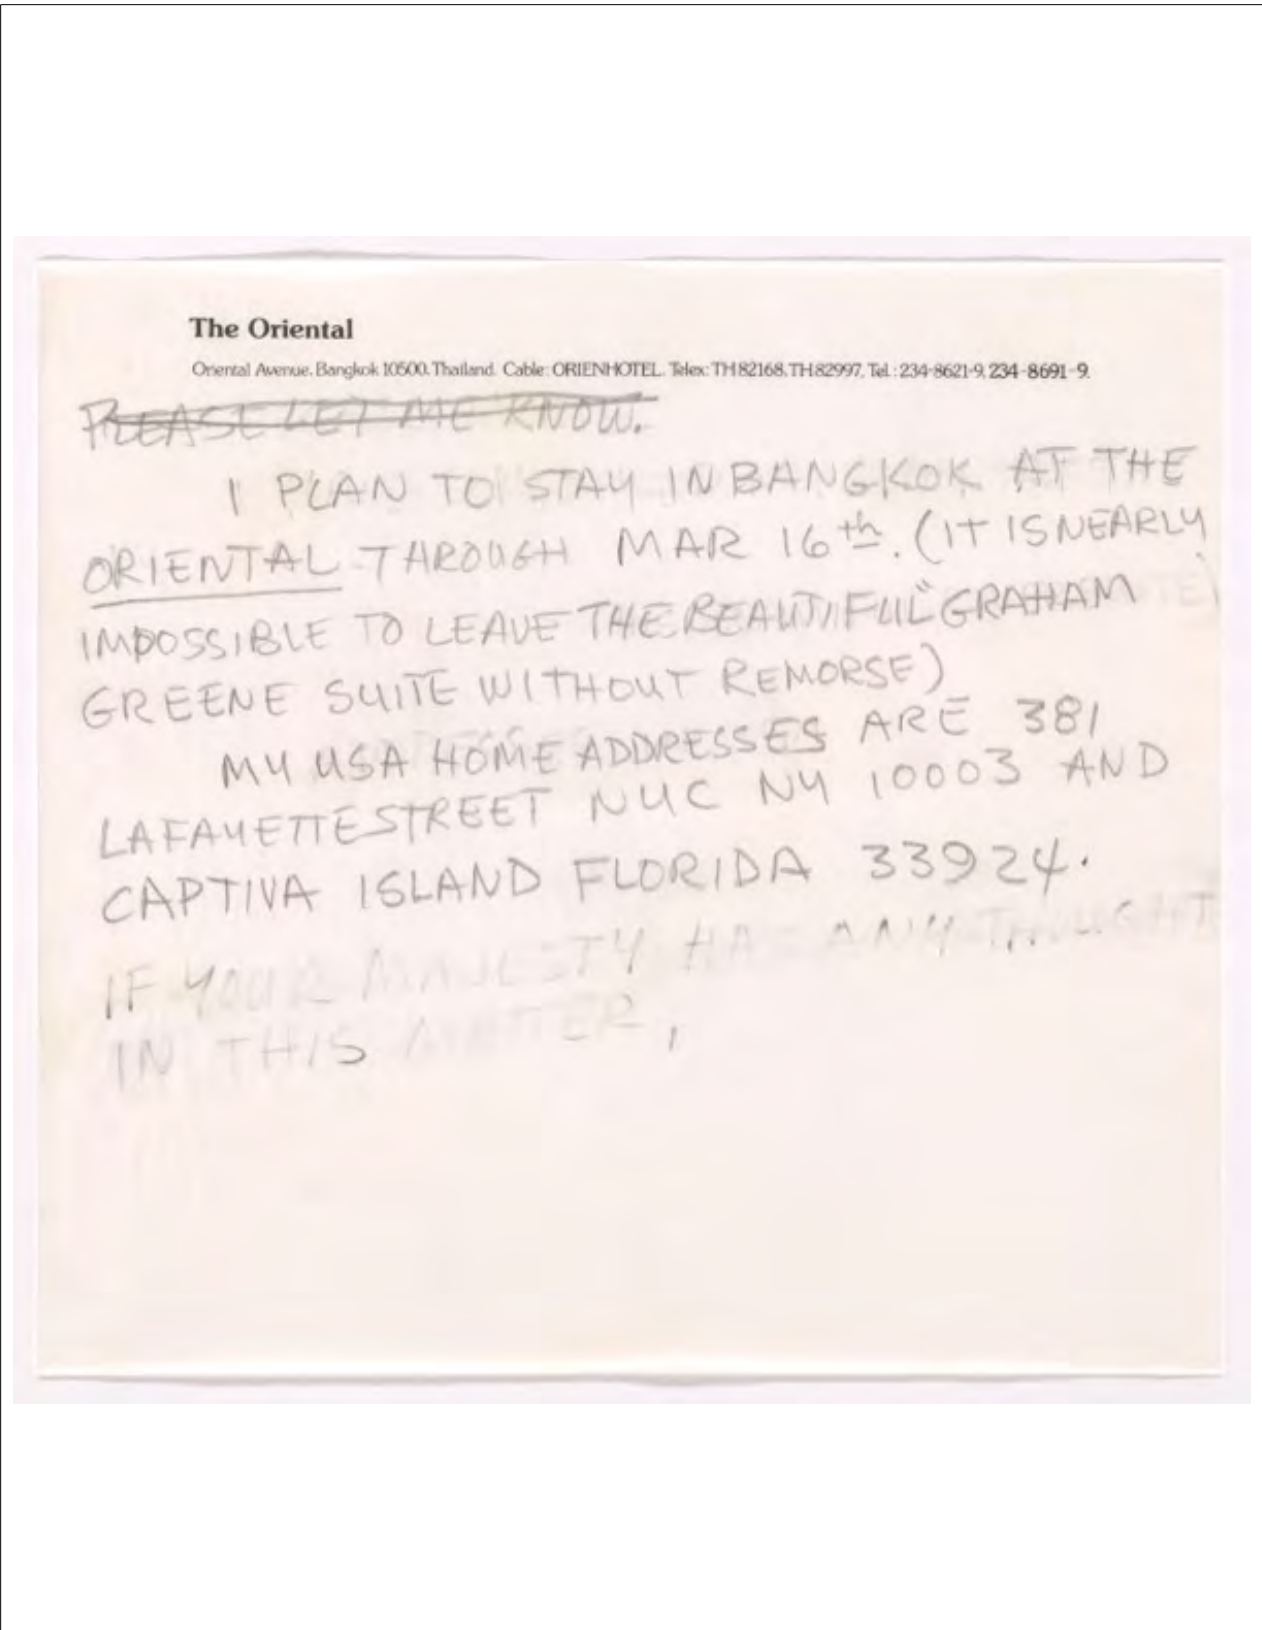 The Oriental
Oriental Avenue, Bangkok 10500, Thailand. Cable: ORIENHOTEL. Telex: TH 82168, TH 82997, Tel.: 234-8621-9, 234-8691-9.
PLEASE LET ME KNOW.
I PLAN TO STAY IN BANGKOK AT THE
ORIENTAL THROUGH MAR 16th. (IT IS NEARLY
IMPOSSIBLE TO LEAVE THE BEAUTIFUL "GRAHAM
GREENE SUITE WITHOUT REMORSE)
MY USA HOME ADDRESSES ARE 381
LAFAYETTE STREET NYC NY 10003 AND
CAPTIVA ISLAND FLORIDA 33924.
IF YOUR MAJESTY HAS ANY THOUGHT
IN THIS MATTER,